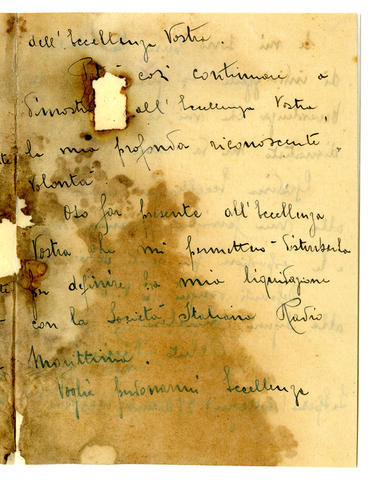 dell'Eccellenza Vostra.
così continuare a
dimostr all'Eccellenza Vostra
la mia profonda riconoscente
volontà.
Oso far presente all'Eccellenza
Vostra che mi permetterò disturbarla
per definire la mia liquidazione
con la Società Italiana Radio
Marittima.
Voglia perdonarmi Eccellenza